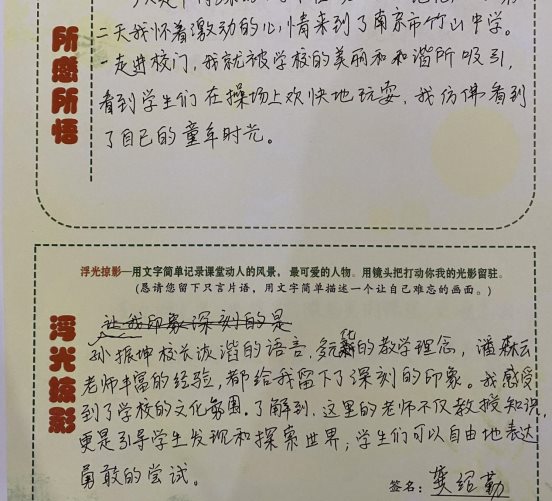 所感所悟
二天我怀着激动的心情来到了南京市竹山中学。
一走进校门，我就被学校的美丽和和谐所吸引，
看到学生们在操场上欢快地玩耍，我仿佛看到
了自己的童年时光。
浮光掠影—用文字简单记录课堂动人的风景，最可爱的人物。用镜头把打动你我的光影留驻。
（恳请您留下只言片语，用文字简单描述一个让自己难忘的画面。）
浮光掠影
让我印象深刻的是
孙振坤校长诙谐的语言，多元化的教学理念，潘森云
老师丰富的经验，都给我留下了深刻的印象。我感受
到了学校的文化氛围。了解到，这里的老师不仅教授知识，
更是引导学生发现和探索世界；学生们可以自由地表达
勇敢的尝试。
签名：龚绍勤